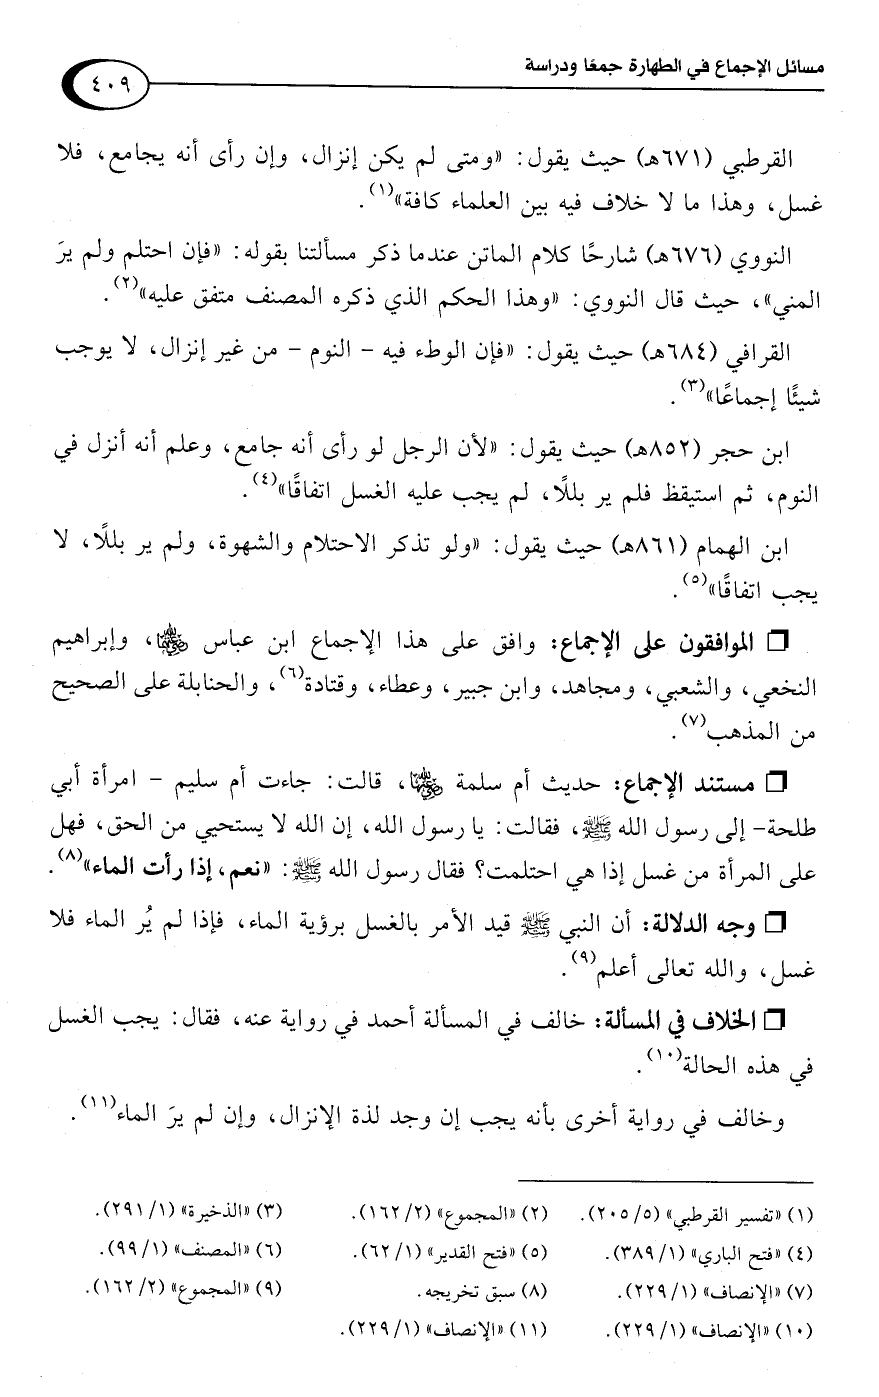 مسائل الإجماع في الطهارة جمعًا ودراسة
٤٠٩
القرطبي (٦٧١هـ) حيث يقول: «ومتى لم يكن إنزال، وإن رأى أنه يجامع، فلا
غسل، وهذا ما لا خلاف فيه بين العلماء كافة»(١).
النووي (٦٧٦هـ) شارحًا كلام الماتن عندما ذكر مسألتنا بقوله: «فإن احتلم ولم يرَ
المني»، حيث قال النووي: «وهذا الحكم الذي ذكره المصنف متفق عليه»(٢).
القرافي (٦٨٤هـ) حيث يقول: «فإن الوطء فيه - النوم - من غير إنزال، لا يوجب
شيئًا إجماعًا»(٣).
ابن حجر (٨٥٢هـ) حيث يقول: «لأن الرجل لو رأى أنه جامع، وعلم أنه أنزل في
النوم، ثم استيقظ فلم ير بللًا، لم يجب عليه الغسل اتفاقًا»(٤).
ابن الهمام (٨٦١هـ) حيث يقول: «ولو تذكر الاحتلام والشهوة، ولم ير بللًا، لا
يجب اتفاقًا»(٥).
❏ الموافقون على الإجماع: وافق على هذا الإجماع ابن عباس رضي الله عنهما، وإبراهيم
النخعي، والشعبي، ومجاهد، وابن جبير، وعطاء، وقتادة(٦)، والحنابلة على الصحيح
من المذهب(٧).
❏ مستند الإجماع: حديث أم سلمة رضي الله عنها، قالت: جاءت أم سليم - امرأة أبي
طلحة- إلى رسول الله ﷺ، فقالت: يا رسول الله، إن الله لا يستحيي من الحق، فهل
على المرأة من غسل إذا هي احتلمت؟ فقال رسول الله ﷺ: «نعم، إذا رأت الماء»(٨).
❏ وجه الدلالة: أن النبي ﷺ قيد الأمر بالغسل برؤية الماء، فإذا لم يُر الماء فلا
غسل، والله تعالى أعلم(٩).
❏ الخلاف في المسألة: خالف في المسألة أحمد في رواية عنه، فقال: يجب الغسل
في هذه الحالة(١٠).
وخالف في رواية أخرى بأنه يجب إن وجد لذة الإنزال، وإن لم يرَ الماء(١١).
(١) «تفسير القرطبي» (٢٠٥/٥). (٢) «المجموع» (١٦٢/٢). (٣) «الذخيرة» (٢٩١/١).
(٤) «فتح الباري» (٣٨٩/١). (٥) «فتح القدير» (٦٢/١). (٦) «المصنف» (٩٩/١).
(٧) «الإنصاف» (٢٢٩/١). (٨) سبق تخريجه. (٩) «المجموع» (١٦٢/٢).
(١٠) «الإنصاف» (٢٢٩/١). (١١) «الإنصاف» (٢٢٩/١).